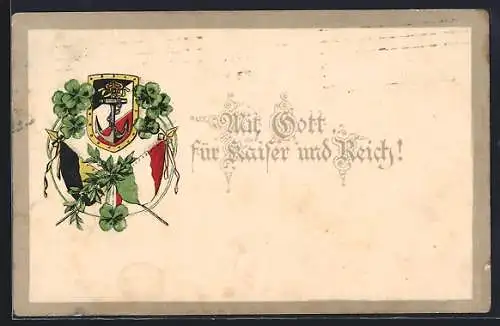 Mit Gott
für Kaiser und Reich!